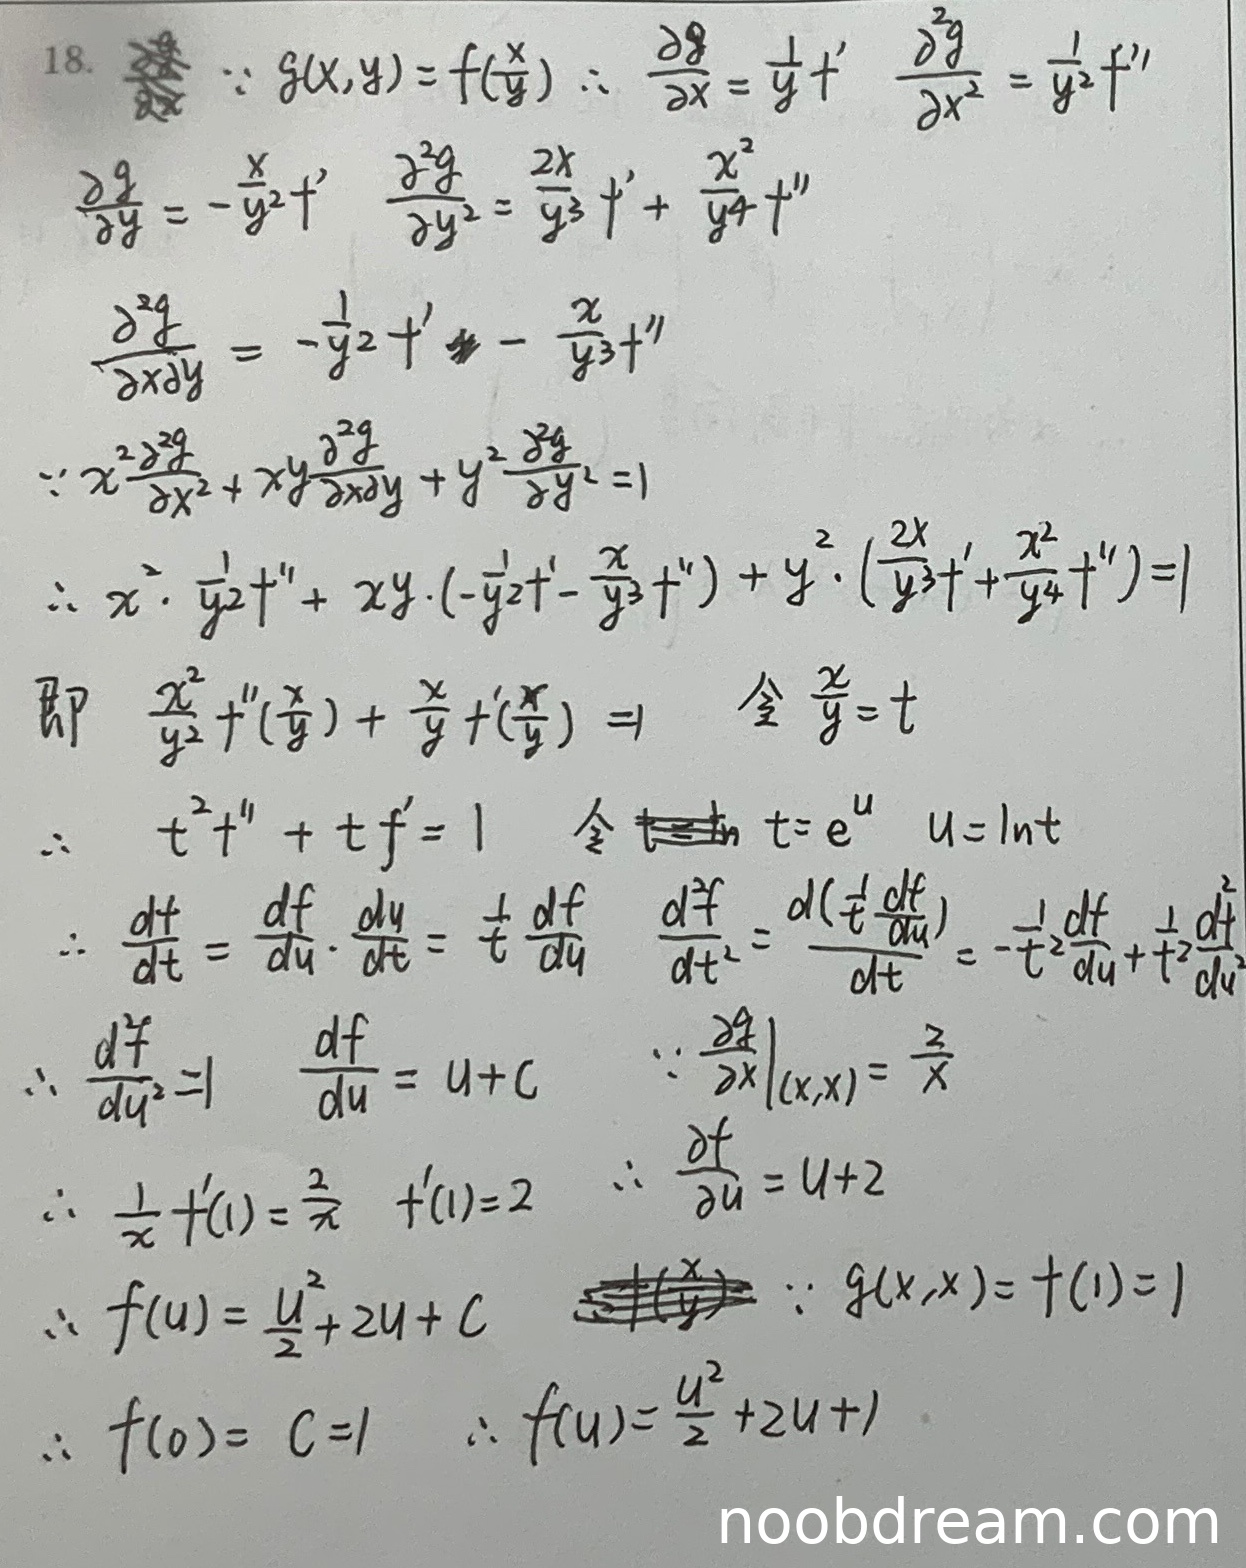 18. ∵ g(x,y) = f(x/y) ∴ ∂g/∂x = 1/y f' ∂²g/∂x² = 1/y² f''
∂g/∂y = -x/y² f' ∂²g/∂y² = 2x/y³ f' + x²/y⁴ f''
∂²g/∂x∂y = -1/y² f' - x/y³ f''
∵ x² ∂²g/∂x² + xy ∂²g/∂x∂y + y² ∂²g/∂y² = 1
∴ x² · 1/y² f'' + xy · (-1/y² f' - x/y³ f'') + y² · (2x/y³ f' + x²/y⁴ f'') = 1
即 x²/y² f''(x/y) + x/y f'(x/y) = 1 令 x/y = t
∴ t² f'' + t f' = 1 令 t = eᵘ u = ln t
∴ df/dt = df/du · du/dt = 1/t df/du d²f/dt² = d(1/t df/du)/dt = -1/t² df/du + 1/t² d²f/du²
∴ d²f/du² = 1 df/du = u + C ∵ ∂g/∂x|(x,x) = 2/x
∴ 1/x f'(1) = 2/x f'(1) = 2 ∴ ∂f/∂u = u + 2
∴ f(u) = u²/2 + 2u + C ∵ g(x,x) = f(1) = 1
∴ f(0) = C = 1 ∴ f(u) = u²/2 + 2u + 1
noobdream.com